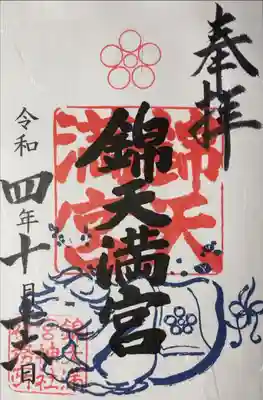 奉拝
錦天満宮
錦天
満宮
令和四年十月